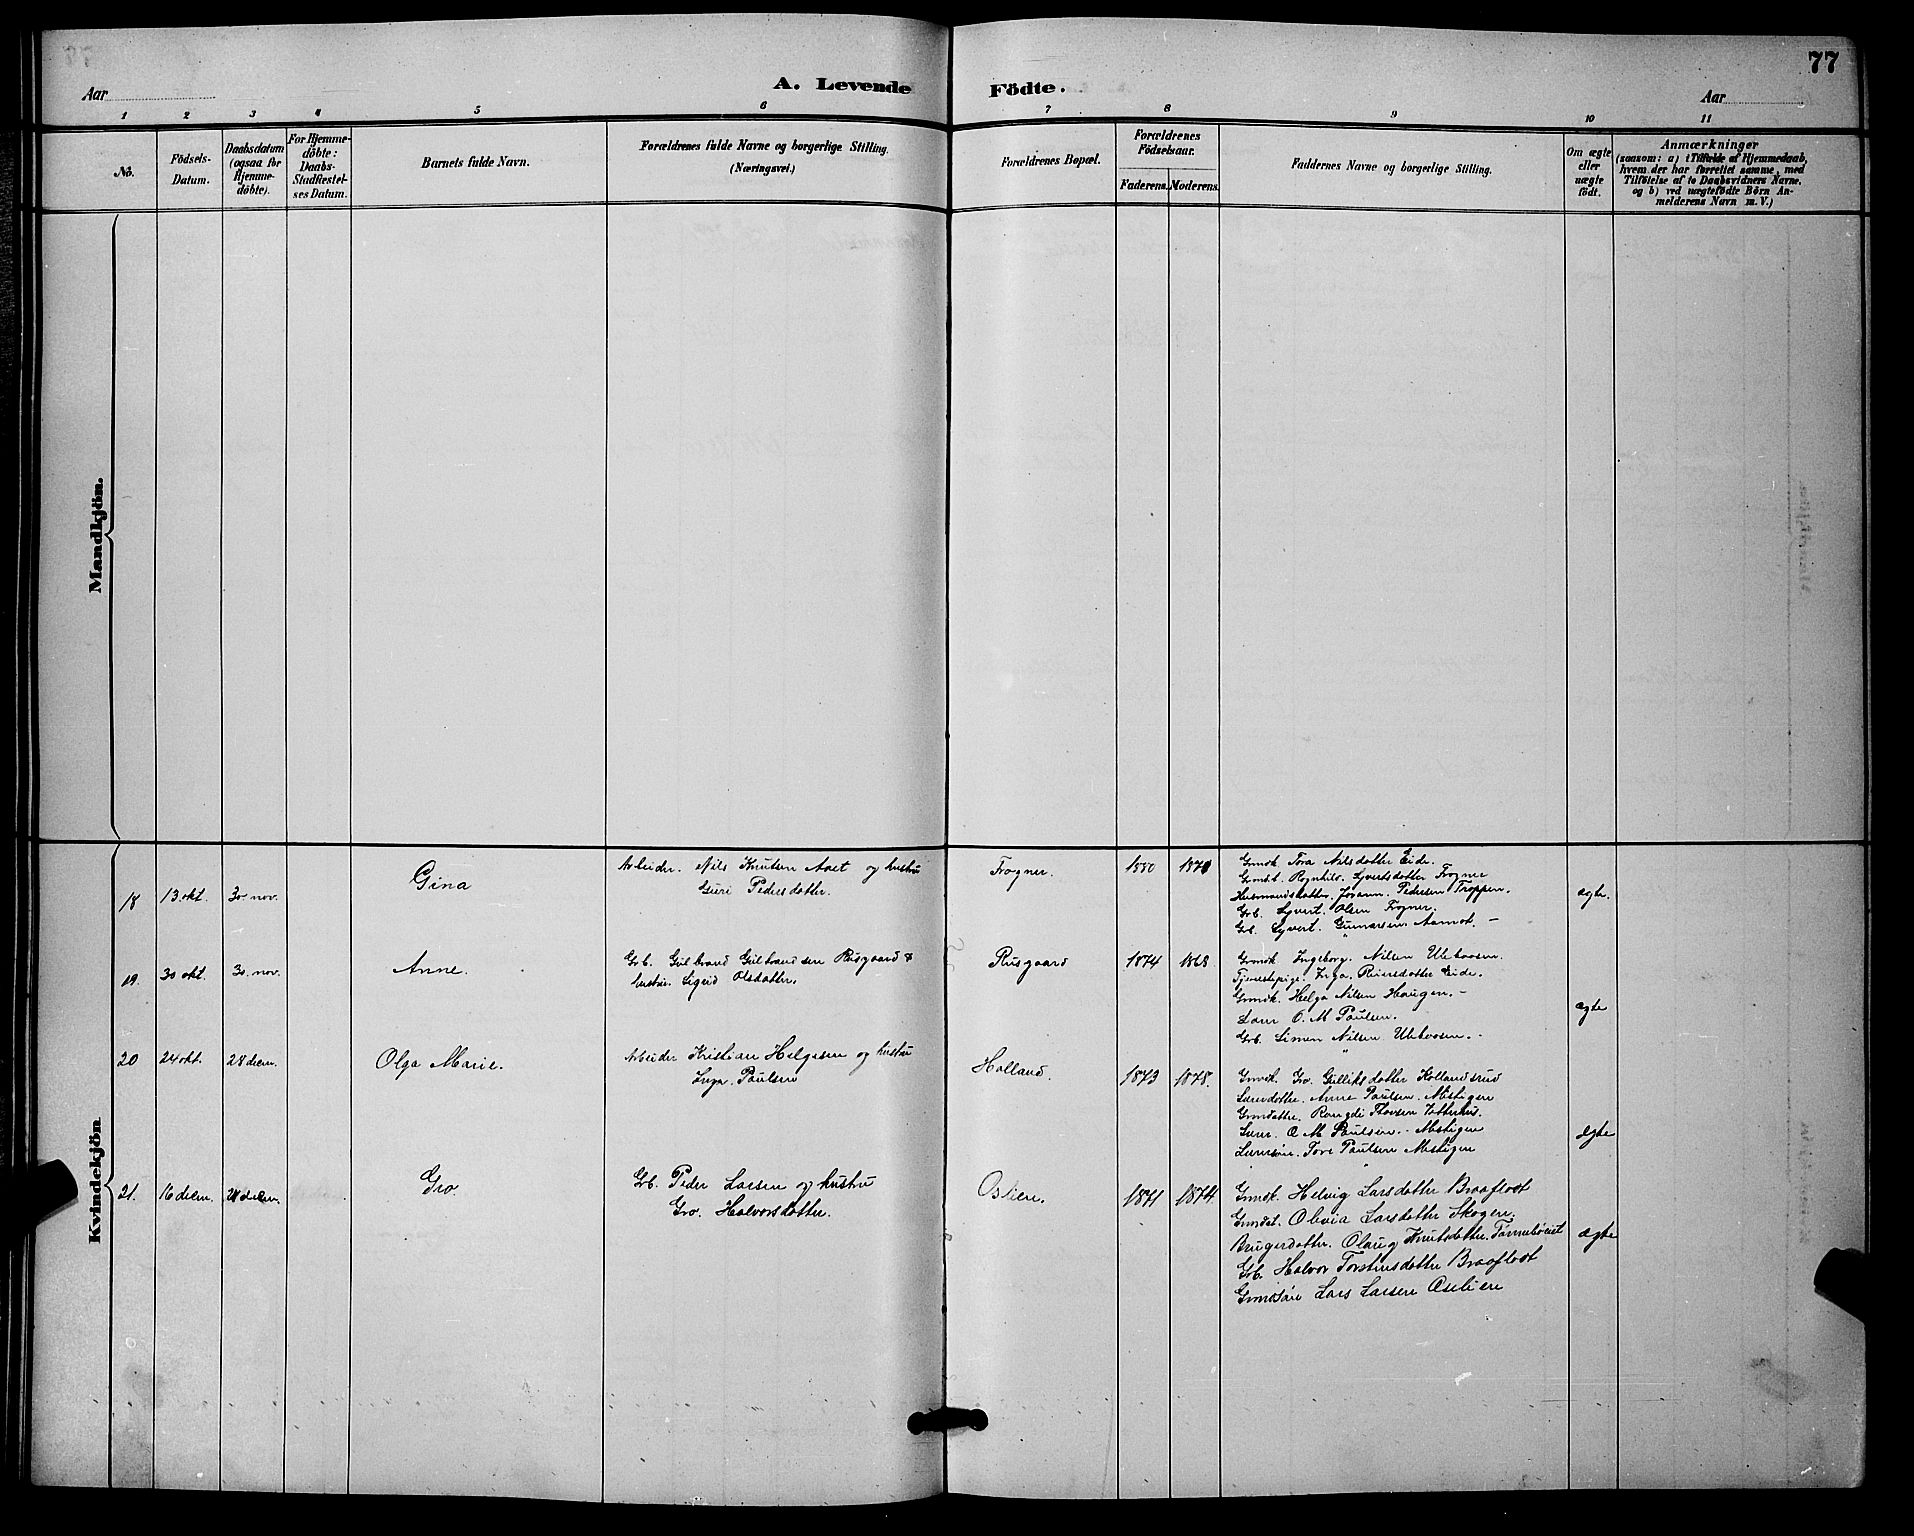 77
Aar
A. Levende Födte.
Aar
1 2 3 4 5 6 7 8 9 10 11
No.
Födsels-
Datum.
Daabsdatum
(ogsaa for
Hjemme-
döbte).
For Hjemme-
döbte:
Daabs-
Stadfæstel-
ses Datum.
Barnets fulde Navn.
Forældrenes fulde Navne og borgerlige Stilling.
(Næringsvei.)
Forældrenes Bopæl.
Forældrenes
Födselsaar.
Faderens. Moderens.
Faddernes Navne og borgerlige Stilling.
Om ægte
eller
uægte
födt.
Anmærkninger
(saasom: a) i Tilfælde af Hjemmedaab,
hvem der har forrettet samme, med
Tilföielse af to Daabsvidners Navne,
og b) ved uægtefödte Börn An-
melderens Navn m. V.)
Mandkjön.
Kvindekjön
18 13 okt. 30 nov.
Gina
Arbeider. Nils Knutsen Aaet og hustru
Guri Pedersdatter.
Frogner.
1880 1871
Grmdt. Tora Nilsdatter Eide.
Grmdt. Ragnhild. Syvertsdatter Frogner
Husmandsdatter. Johann. Pedersen Troppen.
Grb. Syvert. Olsen Frogner.
Grb. Syvert. Gunnarsen Aamot. -
ægte.
19. 30 okt. 30. nov.
Anne.
Grb. Gulbrand Gulbrandsen Rusgaard &
hustru. Sigrid Olsdatter.
Rusgaard
1874 1868.
Grmdt. Ingeborg. Nilsen Ulevoosen.
Tjenestepige. Inga. Reiersdatter Eide.
Grmdt. Helga Nilsen Haugen. -
Lærer O. M Paulsen.
Grb. Simen Nilsen Ulevoosen. -
ægte
20 24 okt. 28 decm.
Olga Marie.
Arbeider Kristian Helgesen og hustru
Inga. Paulsen
Holland.
1873 1878.
Grmdt. Gro. Gulliksdatter Kollandsrud
Lærerdatter. Anne Paulsen. Mestigen
Grmdatter. Rangdi Thovsen Votterhus.
Lærer. O M Paulsen.- Mestigen
Lærersön. Tore Paulsen Mestigen
ægte
21. 16 decm. 28 decm.
Gro.
Grb. Peder Larsen og hustru
Gro. Halvorsdatter.
Oslien.
1871 1874.
Grmdt. Helvig Larsdatter Braaflodt
Grmdat. Olivia Larsdatter Skogen.
Brugerdatter. Olaug Knutsdatter.
Grb. Halvor Torstensdatter Braaflodt
Grmdsön Lars Larsen Oslien
ægte